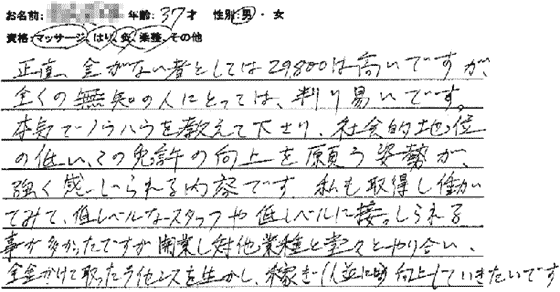 お名前: 年齢: 37才 性別: 男・女
資格: マッサージ、はり、灸、柔整、その他
正直、金がない者としては29,800は高いですが、
全くの無知の人にとっては、判り易いです。
本気でノウハウを教えて下さり、社会的地位
の低い、この免許の向上を願う姿勢が、
強く感じられる内容です 私も取得し働い
てみて、低レベルなスタッフや低レベルに接しられる
事が多かったですが開業し対他業種と堂々とやり合い、
全金かけて取ったライセンスを生かし、稼ぎ(人並に)向上していきたいです